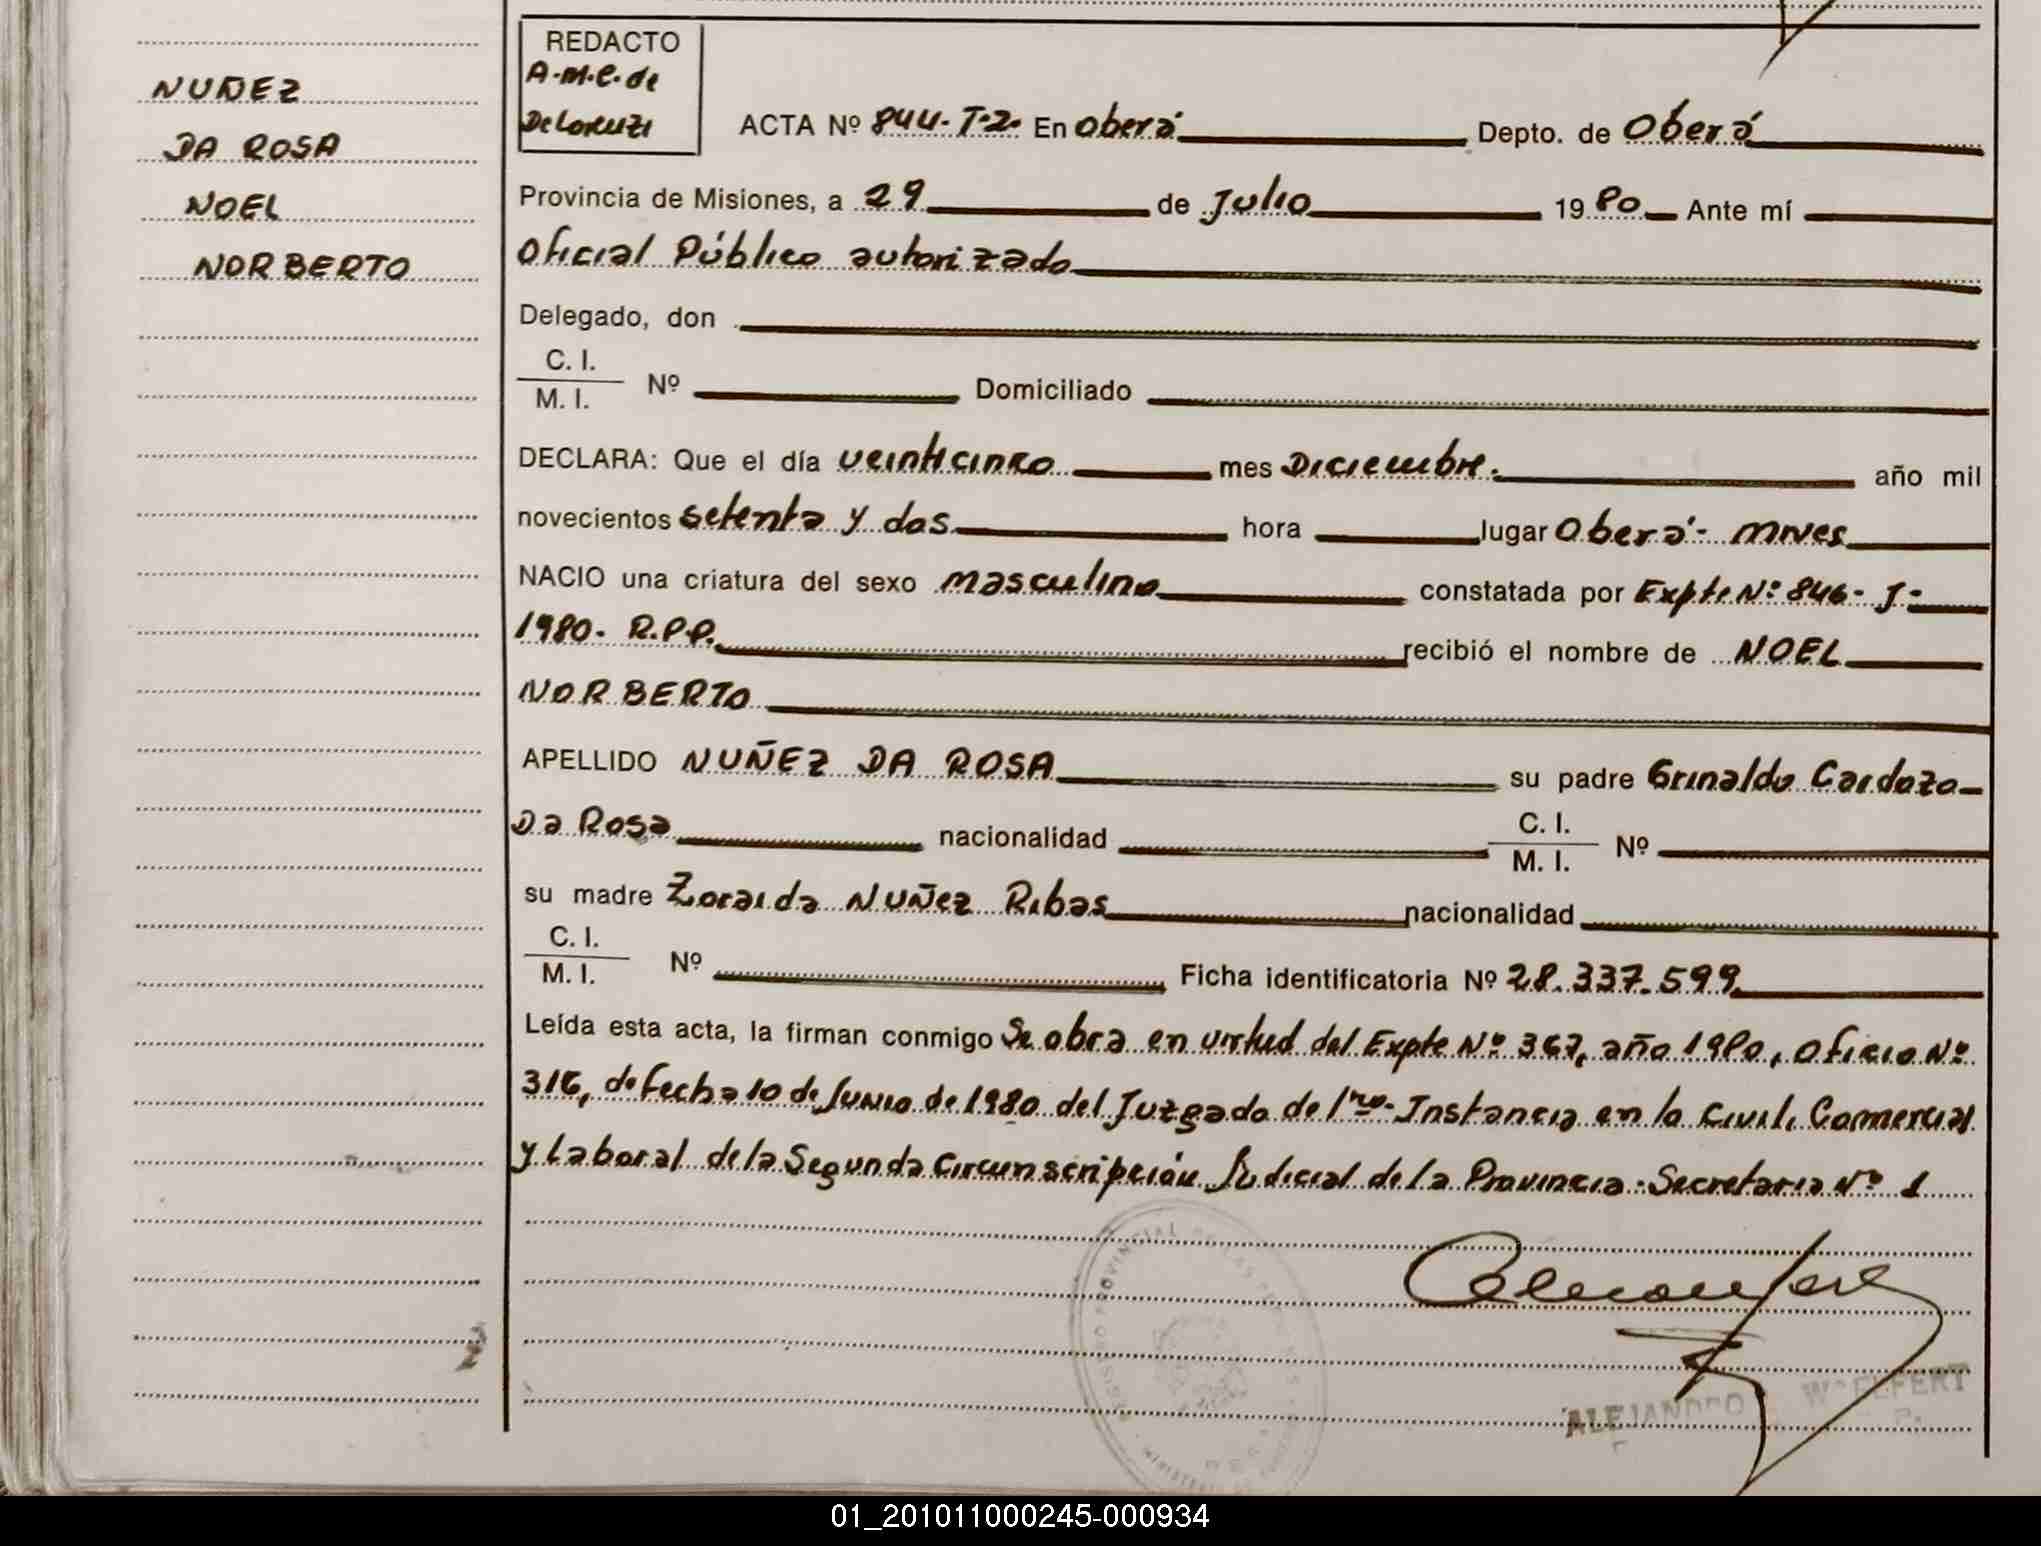 NUÑEZ
DA ROSA
NOEL
NORBERTO
REDACTO
A.M.C. de
De Lorenzi
ACTA Nº 844-T-2- En Oberá Depto. de Oberá
Provincia de Misiones, a 29 de Julio 19 80 Ante mí
Oficial Público autorizado
Delegado, don
C. I.
M. I. Nº Domiciliado
DECLARA: Que el día veinticinco mes Diciembre. año mil
novecientos setenta y dos hora lugar Oberá- Mnes
NACIO una criatura del sexo masculino constatada por Expte Nº 846- J-
1980- R.P.P. recibió el nombre de NOEL
NORBERTO
APELLIDO NUÑEZ DA ROSA su padre Grinaldo Cardozo
Da Rosa nacionalidad C. I.
M. I. Nº
su madre Zoraida Nuñez Ribas nacionalidad
C. I.
M. I. Nº Ficha identificatoria Nº 28.337.599
Leída esta acta, la firman conmigo Se obra en virtud del Expte Nº 367, año 1980, Oficio Nº
316, de fecha 10 de Junio de 1980 del Juzgado de 1ra- Instancia en lo Civil, Comercial
y Laboral de la Segunda Circunscripción Judicial de la Provincia- Secretaria Nº 1
PROVINCIAL DE LAS
ALEJANDRO WOELFERT
01_201011000245-000934